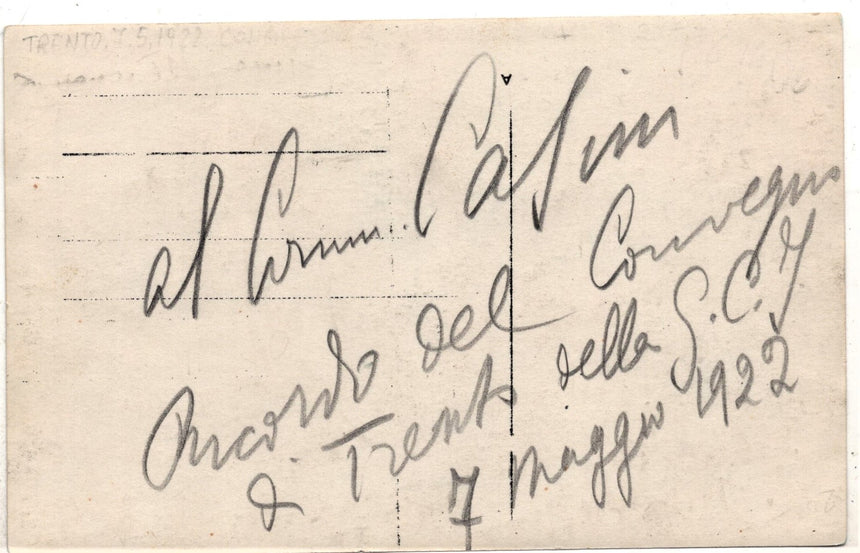 TRENTO, 7.5.1922
al Comm. Casini
Ricordo del Convegno
di Trento della G.C.I
7 Maggio 1922